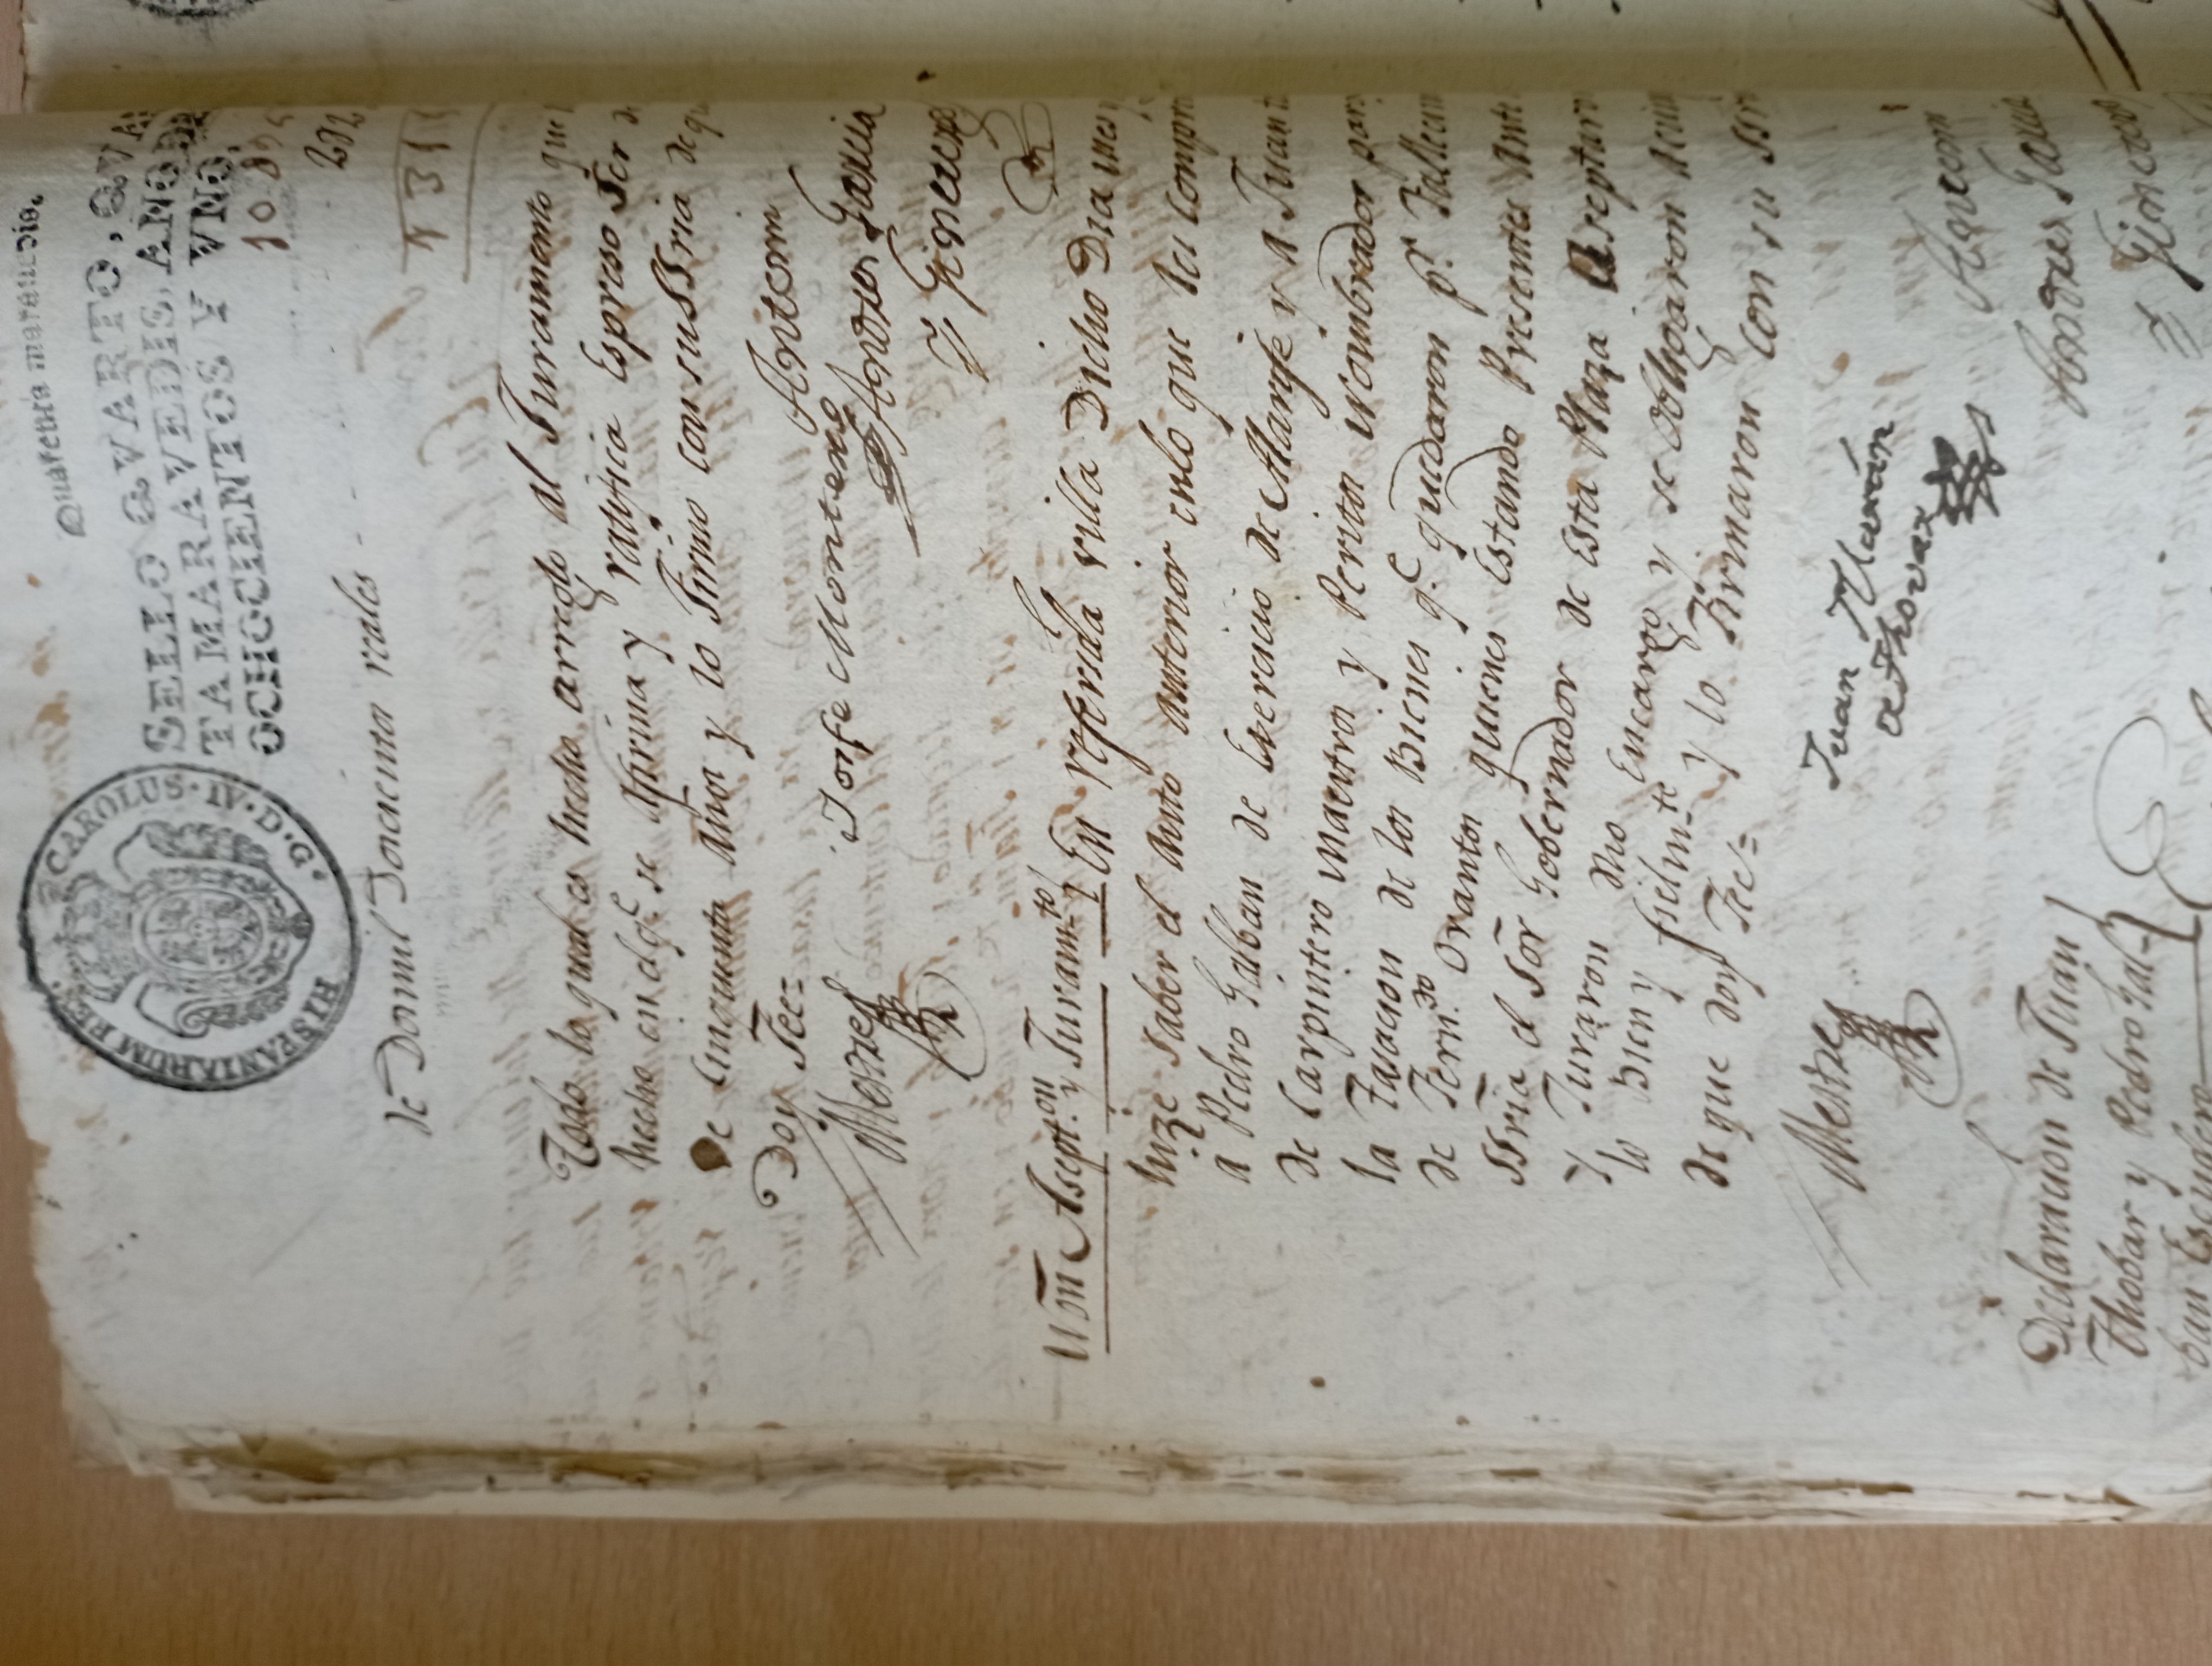 Quarenta maravedis.
HISPANIARUM REX. CAROLUS. IV. D. G.
SELLO QVARTO, QVA
TAMARAVEDIS, AÑO DE
OCHOCIENTOS Y VNO.
10 89
282
de Dosmil Doscientos reales
131
Todo lo qual es hecho arreglo al Juramento que
hecho en el q.e se Afirma y ratifica Espreso ser
de cinquenta años y lo Firmo con su SSria de q
Doy Fee=
Antemi
Mestre
Josfe Montero
Andres Garcia
y Gimenez
Non Asept.on y Juram.to En referida villa Dicho Dia mes y
hize saber el auto anterior enlo que les compre
á Pedro Galban de Exercicio de Alarife y a Juan
de Carpintero maestros y Peritos nombrados para
la Tasacion de los Bienes q.e quedaron p.r Fallecim
de Fern.do Orantos quienes Estando Presentes ante
SSria el Sor Gobernador de Esta Plaza Aseptaro
y Juraron dho Encargo y se obligaron a cum
lo Bien y fielm.te y lo Firmaron con su SSri
de que doy Fee=
Mestre
Juan Marín
de Thovar
Antemi
Andres Garcia
y Gimenez
Declaracion de Juan
Thobar y Pedro Gal-
ban Escudero